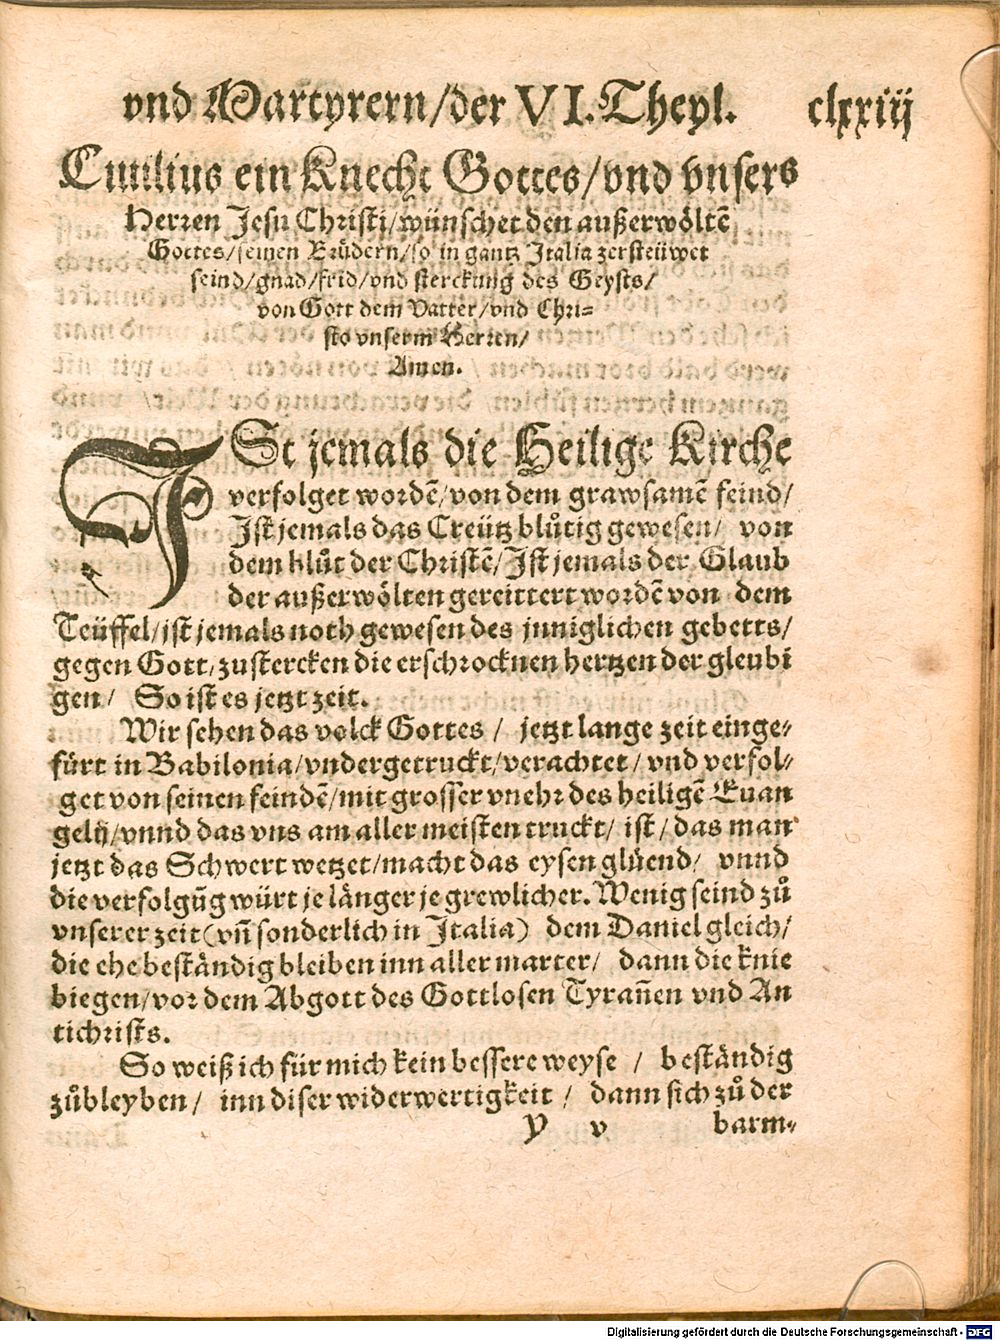 vnd Martyrern/der VI. Theyl. clxxiij
Ciuilius ein Knecht Gottes/vnd vnsers
Herren Jesu Christi/wünschet den außerwöltē
Gottes/seinen Brüdern/so in gantz Italia zersteüwet
seind/gnad/frid/vnd sterckung des Geysts/
von Gott dem Vatter/vnd Chri=
sto vnserm Herren/
Amen.
ISt jemals die Heilige Kirche
verfolget wordē/von dem grawsamē feind/
Ist jemals das Creütz blůtig gewesen/ von
dem blůt der Christē/Ist jemals der Glaub
der außerwölten gereittert wordē von dem
Teüffel/ist jemals noth gewesen des jnniglichen gebetts/
gegen Gott/zustercken die erschrocknen hertzen der gleubi
gen/ So ist es jetzt zeit.
Wir sehen das volck Gottes/ jetzt lange zeit einge=
fürt in Babilonia/vndergetruckt/verachtet/vnd verfol=
get von seinen feindē/mit grosser vnehr des heiligē Euan
gelij/vnnd das vns am aller meisten truckt/ist/das man
jetzt das Schwert wetzet/macht das eysen glüend/ vnnd
die verfolgūg würt je länger je grewlicher. Wenig seind zů
vnserer zeit (vn̄ sonderlich in Italia) dem Daniel gleich/
die ehe beständig bleiben inn aller marter/ dann die knie
biegen/vor dem Abgott des Gottlosen Tyran̄en vnd An
tichrists.
So weiß ich für mich kein bessere weyse/ beständig
zůbleyben/ inn diser widerwertigkeit/ dann sich zů der
Y v barm=
Digitalisierung gefördert durch die Deutsche Forschungsgemeinschaft - DFG